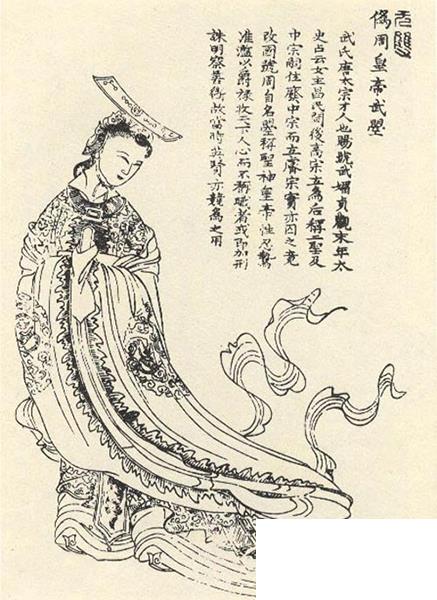 无雙
僞周皇帝武曌
武氏唐太宗才人也賜號武媚貞觀末年太
史占云女主昌民間後高宗立為后稱二聖及
中宗嗣位廢中宗而立睿宗實亦囚之竟
改國號周自名曌稱聖神皇帝性忍鷙
准濫以爵祿收天下人心而不稱職者或即加刑
誅明察善故當時英賢亦競為之用